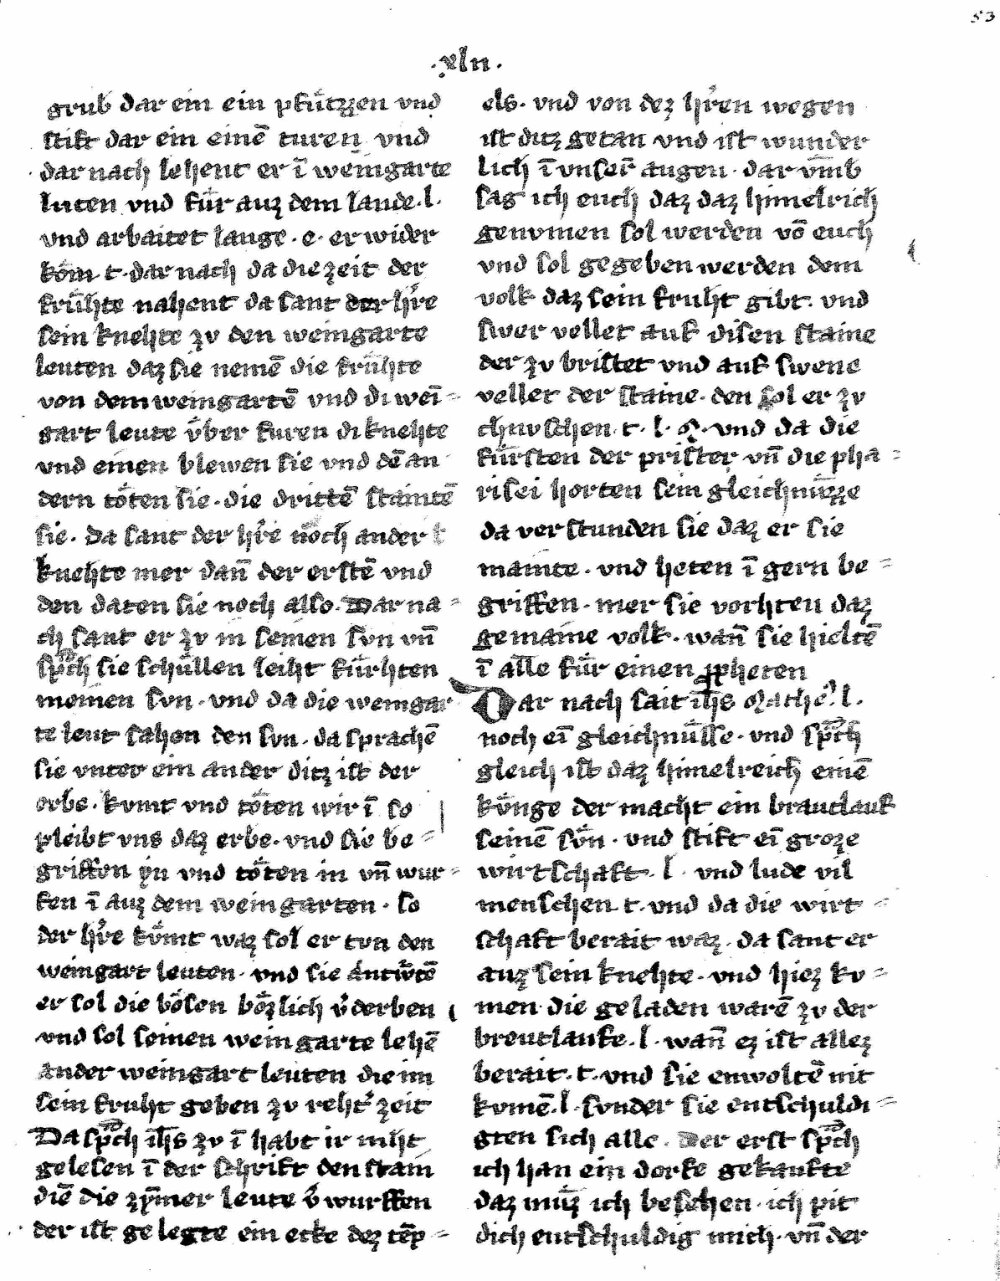 53
·xlii·
grub dar ein ein pfützzen vnd
stift dar ein einē turen vnd
dar nach lehent er ī weingarte
luten vnd für auz dem lande·l·
vnd arbaitet lange·e·er wider
kom·t·dar nach da die zeit der
frühte nahent da sant der h͛re
sein knehte zv den weingarte
leuten daz sie nemē die frühte
von dem weingartē vnd di wei᷃=
gart leute v̈ber furen di knehte
vnd einen blewen sie vnd dē an
dern töten sie·die drittē staintē
sie·da sant der h͛re noch ander
knehte mer dan̄ der erstē vnd
den daten sie noch also·Dar na=
ch sant er zv in seinen svn vn̄
sp̄ch sie schüllen leiht fürhten
meinen svn·vnd da die weingar
te leut sahen den svn·da sprachē
sie vnter ein ander ditz ist der
erbe·kvmt vnd töten wir ī so
pleibt vns daz erbe·vnd sie be=
griffen yn vnd töten in vn̄ wur=
fen ī auz dem weingarten·so
der h͛re kv̈mt waz sol er tvn den
weingart leuten·vnd sie antw̄tē
er sol die bösen bözlich v͛derben
vnd sol seinen weingarte lehē
ander weingart leuten die im
sein fruht geben zv reht͛ zeit
Da sp̄ch ih̄s zv ī habt ir niht
gelesen ī der schrift den stain
diē die zȳmer leute v͛wurffen
der ist gelegte ein ecke dez tēp=
els·vnd von dez h͛ren wegen
ist ditz getan vnd ist wunder
lich ī vnser̄ augen·dar vm̄b
sag ich euch daz daz himelrich
genvmen sol werden vō euch
vnd sol gegeben werden dem
volk daz sein fruht gibt·vnd
swer vellet auf disen staine
der zv bristet vnd auf swene
vellet der staine·den sol er zv
chnvschen·t·l· vnd da die
fürsten der prister vn̄ die pha=
risei horten sein gleichnüzze
da verstunden sie daz er sie
mainte·vnd heten ī gern be=
griffen·mer sie vorhten daz
gemaine volk·wan̄ sie hieltē
ī alle für einen ꝓheten
Dar nach sait ih̄s Mathe͛·l·
noch eī gleichnüsse·vnd sp̄ch
gleich ist daz himelreich einē
künge der macht ein brautlauf
seinē svn·vnd stift eī groze
wirtschaft·l·vnd lude vil
menschen·t·vnd da die wirt=
schaft berait waz·da sant er
auz sein knehte·vnd hiez kv=
men die geladen warē zv der
breutlaufe·l·wan̄ ez ist allez
berait·t·vnd sie enwoltē nit
kvmē·l·svnder sie entschuldi=
gten sich alle·der erst sp̄ch
ich han ein dorfe gekaufte
daz müz ich besehen·ich pit
dich entschuldig mich·vn̄ der